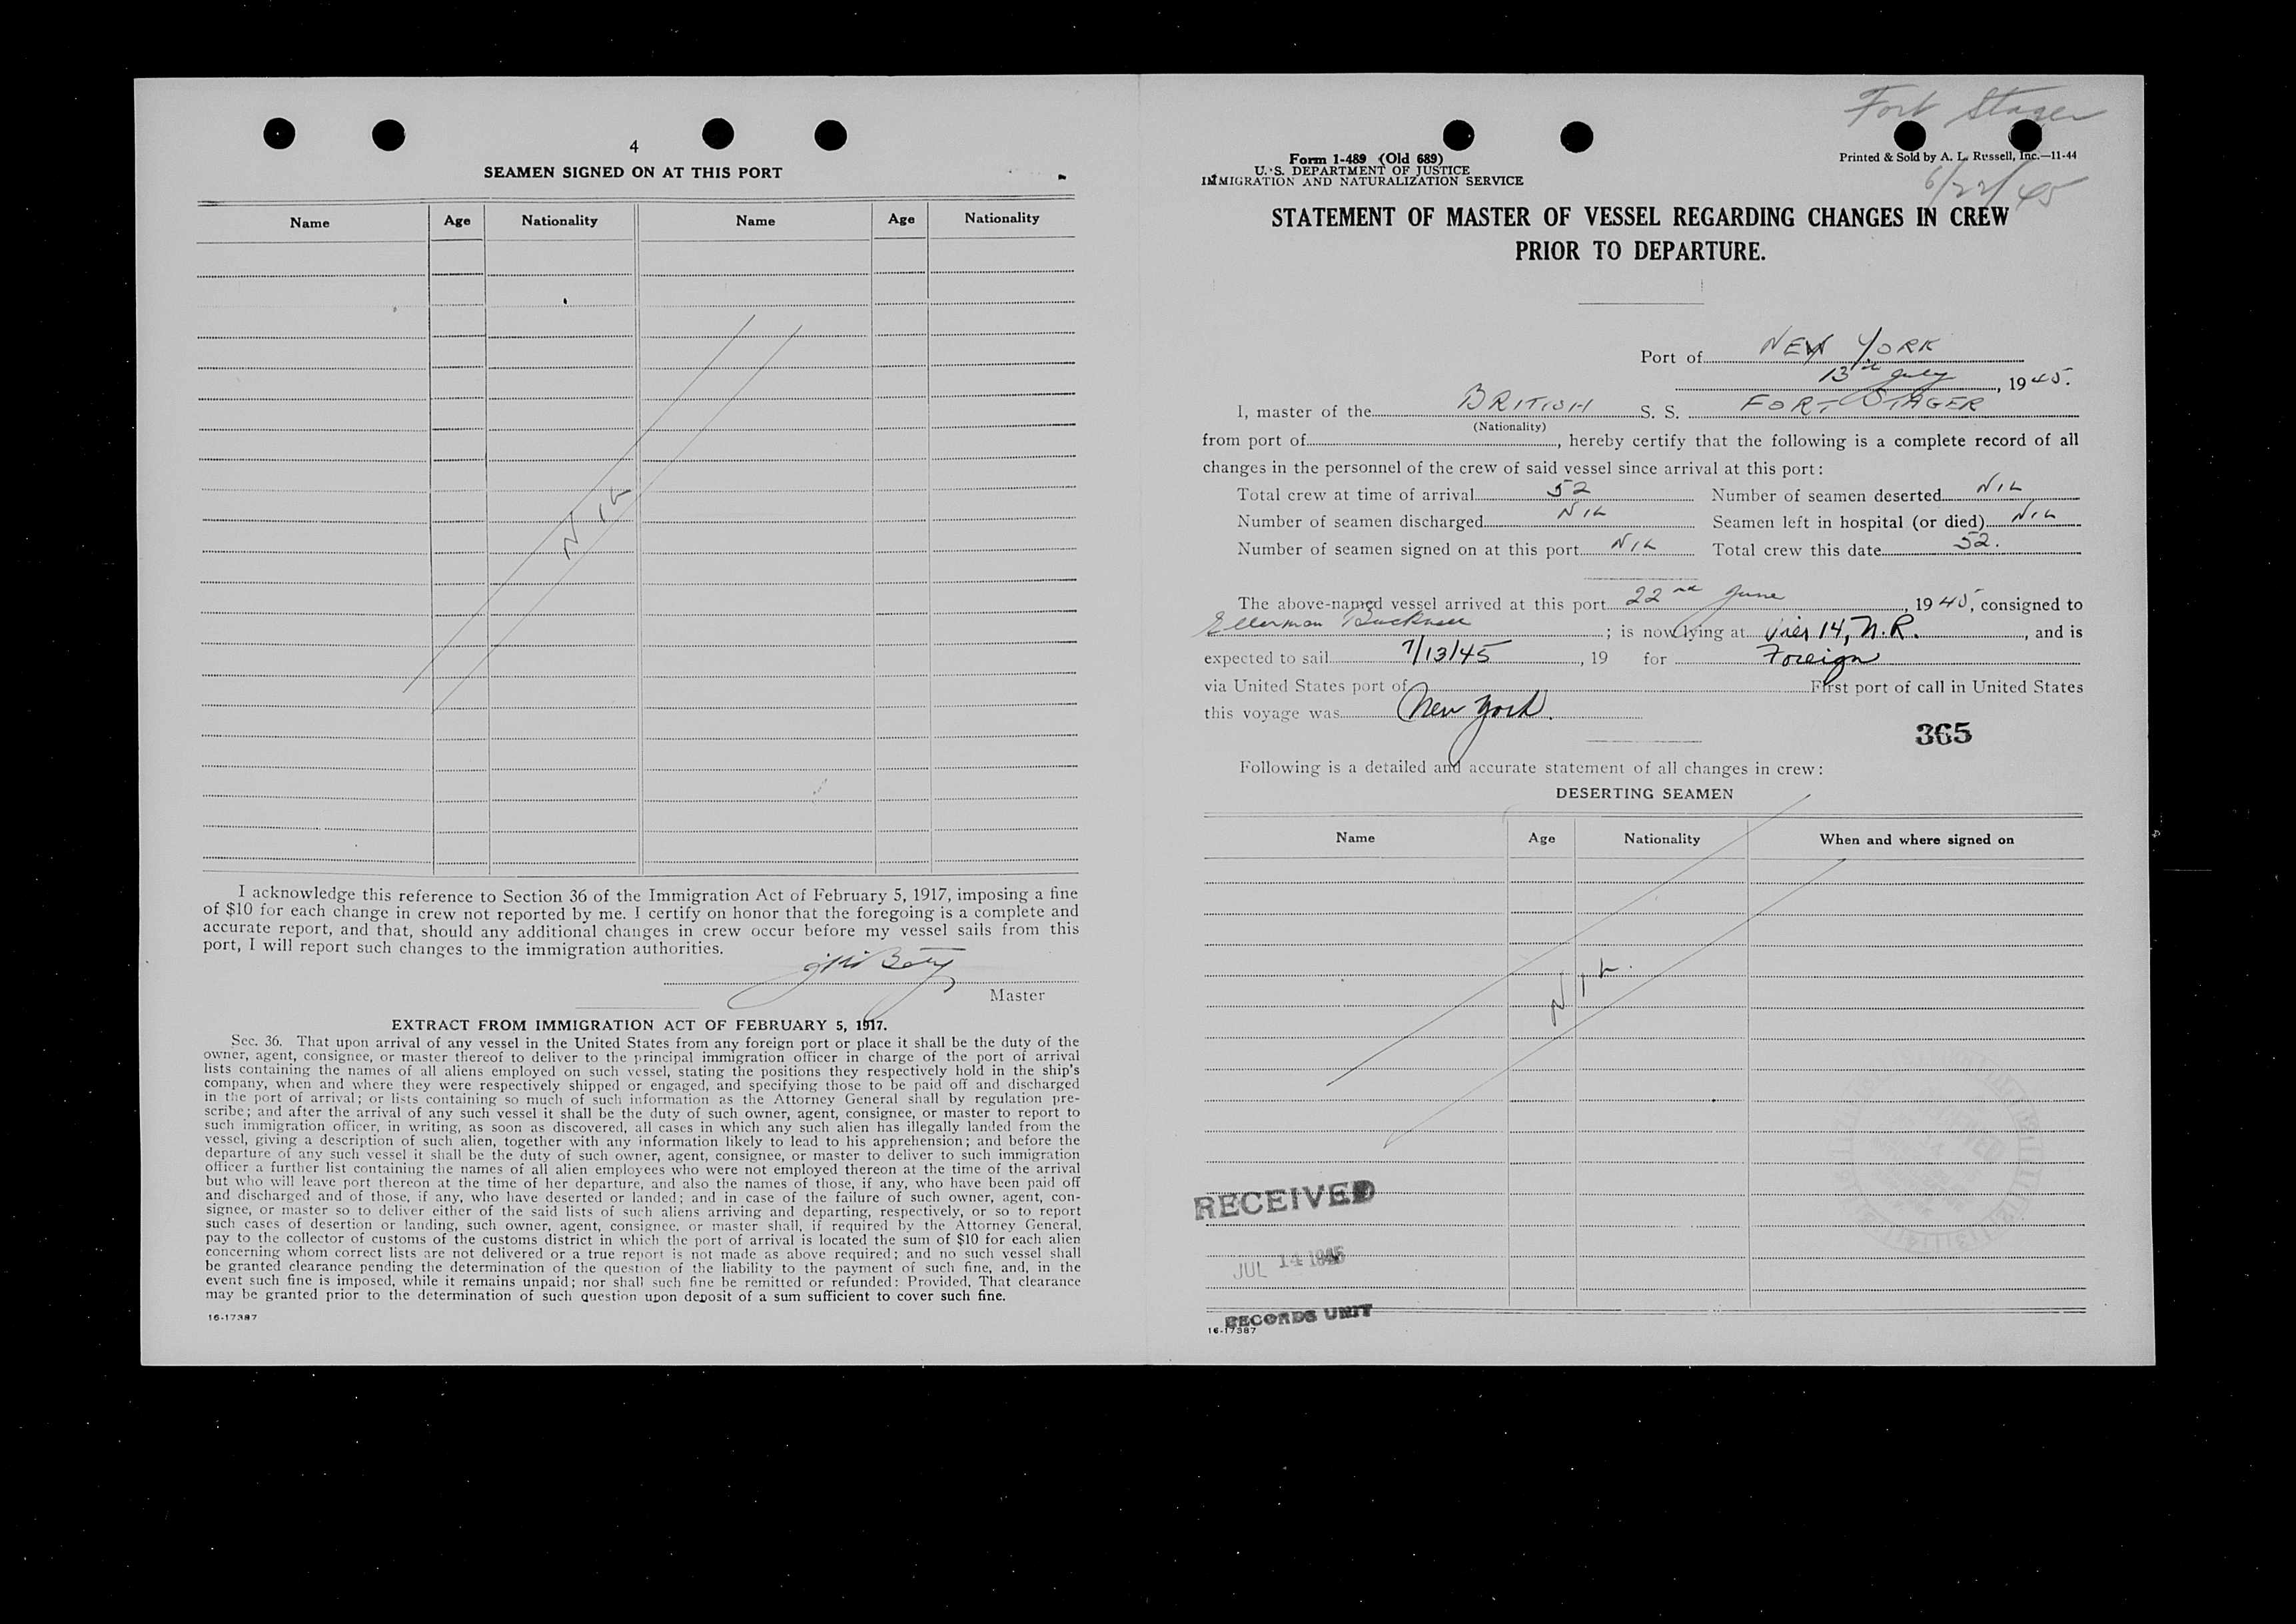 4
SEAMEN SIGNED ON AT THIS PORT
Name Age Nationality Name Age Nationality
NIL
I acknowledge this reference to Section 36 of the Immigration Act of February 5, 1917, imposing a fine
of $10 for each change in crew not reported by me. I certify on honor that the foregoing is a complete and
accurate report, and that, should any additional changes in crew occur before my vessel sails from this
port, I will report such changes to the immigration authorities.
Master
EXTRACT FROM IMMIGRATION ACT OF FEBRUARY 5, 1917.
Sec. 36. That upon arrival of any vessel in the United States from any foreign port or place it shall be the duty of the
owner, agent, consignee, or master thereof to deliver to the principal immigration officer in charge of the port of arrival
lists containing the names of all aliens employed on such vessel, stating the positions they respectively hold in the ship's
company, when and where they were respectively shipped or engaged, and specifying those to be paid off and discharged
in the port of arrival; or lists containing so much of such information as the Attorney General shall by regulation pre-
scribe; and after the arrival of any such vessel it shall be the duty of such owner, agent, consignee, or master to report to
such immigration officer, in writing, as soon as discovered, all cases in which any such alien has illegally landed from the
vessel, giving a description of such alien, together with any information likely to lead to his apprehension; and before the
departure of any such vessel it shall be the duty of such owner, agent, consignee, or master to deliver to such immigration
officer a further list containing the names of all alien employees who were not employed thereon at the time of the arrival
but who will leave port thereon at the time of her departure, and also the names of those, if any, who have been paid off
and discharged and of those, if any, who have deserted or landed; and in case of the failure of such owner, agent, con-
signee, or master so to deliver either of the said lists of such aliens arriving and departing, respectively, or so to report
such cases of desertion or landing, such owner, agent, consignee, or master shall, if required by the Attorney General,
pay to the collector of customs of the customs district in which the port of arrival is located the sum of $10 for each alien
concerning whom correct lists are not delivered or a true report is not made as above required; and no such vessel shall
be granted clearance pending the determination of the question of the liability to the payment of such fine, and, in the
event such fine is imposed, while it remains unpaid; nor shall such fine be remitted or refunded: Provided, That clearance
may be granted prior to the determination of such question upon deposit of a sum sufficient to cover such fine.
16-17387
Fort Stager
Form I-489 (Old 689)
U. S. DEPARTMENT OF JUSTICE
IMMIGRATION AND NATURALIZATION SERVICE
Printed & Sold by A. L. Russell, Inc.—11-44
6/22/45
STATEMENT OF MASTER OF VESSEL REGARDING CHANGES IN CREW
PRIOR TO DEPARTURE.
Port of NEW YORK
13th July, 1945.
I, master of the BRITISH S. S. FORT STAGER
(Nationality)
from port of , hereby certify that the following is a complete record of all
changes in the personnel of the crew of said vessel since arrival at this port:
Total crew at time of arrival 52 Number of seamen deserted NIL
Number of seamen discharged NIL Seamen left in hospital (or died) NIL
Number of seamen signed on at this port NIL Total crew this date 52.
The above-named vessel arrived at this port 22nd June, 1945, consigned to
Ellerman Bucknall; is now lying at Pier 14, N.R., and is
expected to sail 7/13/45, 19 for Foreign
via United States port of First port of call in United States
this voyage was New York.
365
Following is a detailed and accurate statement of all changes in crew:
DESERTING SEAMEN
Name Age Nationality When and where signed on
NIL.
RECEIVED
JUL 14 1945
RECORDS UNIT
16-17387